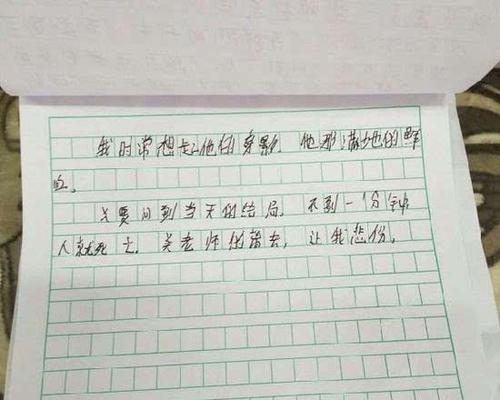 我时常想起他的身影 他那满地的鲜
血。
只要问到当天的结局，不到一分钟
人就死 老师的 去，让我悲伤。